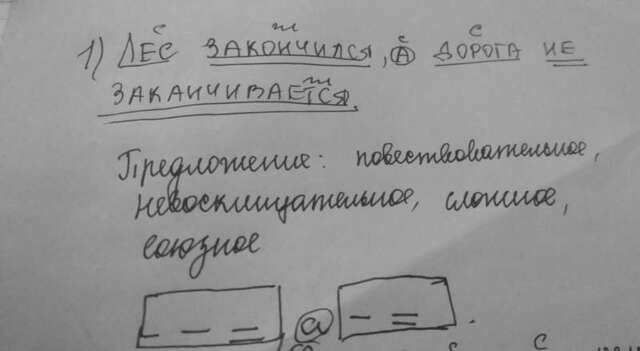 с г с
1) ЛЕС ЗАКОНЧИЛСЯ, А ДОРОГА НЕ
г
ЗАКАНЧИВАЕТСЯ.
Предложение: повествовательное,
невосклицательное, сложное,
союзное
а .
с с